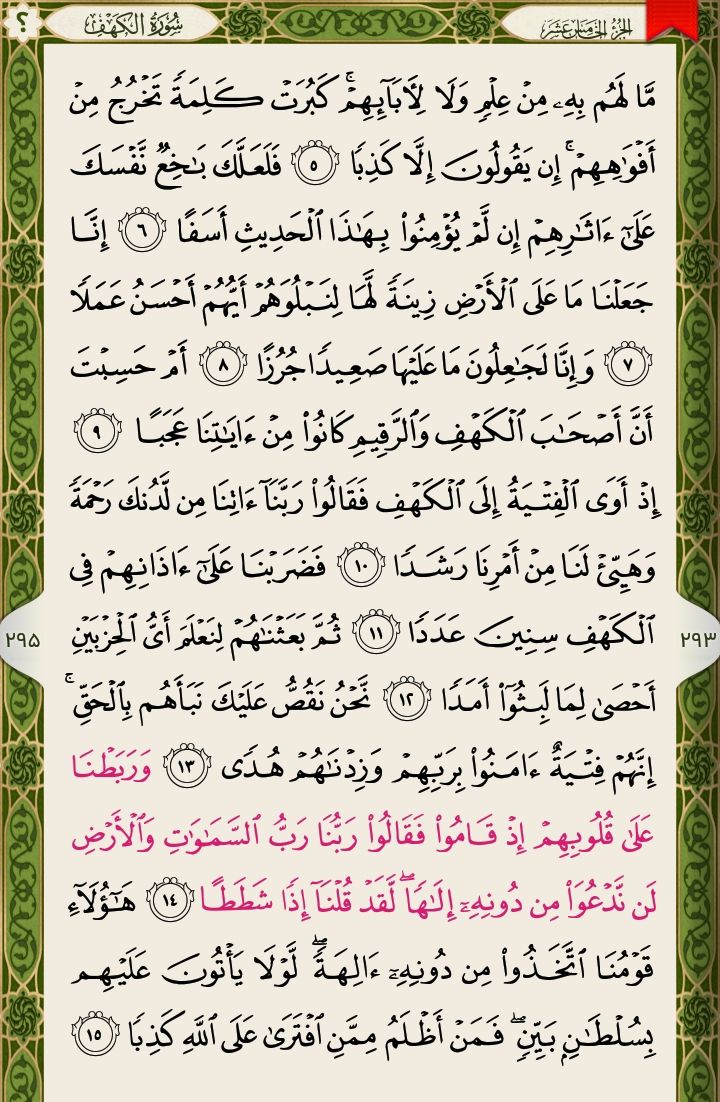 سُورَةُ الكَهْفِ
الجُزْءُ الخَامِسُ عَشَر
؟
مَّا لَهُم بِهِۦ مِنۡ عِلۡمٖ وَلَا لِأٓبَآئِهِمۡۚ كَبُرَتۡ كَلِمَةٗ تَخۡرُجُ مِنۡ
أَفۡوَٰهِهِمۡۚ إِن يَقُولُونَ إِلَّا كَذِبٗا ٥ فَلَعَلَّكَ بَٰخِعٞ نَّفۡسَكَ
عَلَىٰٓ ءَاثَٰرِهِمۡ إِن لَّمۡ يُؤۡمِنُواْ بِهَٰذَا ٱلۡحَدِيثِ أَسَفًا ٦ إِنَّا
جَعَلۡنَا مَا عَلَى ٱلۡأَرۡضِ زِينَةٗ لَّهَا لِنَبۡلُوَهُمۡ أَيُّهُمۡ أَحۡسَنُ عَمَلٗا
٧ وَإِنَّا لَجَٰعِلُونَ مَا عَلَيۡهَا صَعِيدٗا جُرُزًا ٨ أَمۡ حَسِبۡتَ
أَنَّ أَصۡحَٰبَ ٱلۡكَهۡفِ وَٱلرَّقِيمِ كَانُواْ مِنۡ ءَايَٰتِنَا عَجَبًا ٩
إِذۡ أَوَى ٱلۡفِتۡيَةُ إِلَى ٱلۡكَهۡفِ فَقَالُواْ رَبَّنَآ ءَاتِنَا مِن لَّدُنكَ رَحۡمَةٗ
وَهَيِّئۡ لَنَا مِنۡ أَمۡرِنَا رَشَدٗا ١٠ فَضَرَبۡنَا عَلَىٰٓ ءَاذَانِهِمۡ فِي
ٱلۡكَهۡفِ سِنِينَ عَدَدٗا ١١ ثُمَّ بَعَثۡنَٰهُمۡ لِنَعۡلَمَ أَيُّ ٱلۡحِزۡبَيۡنِ
أَحۡصَىٰ لِمَا لَبِثُوٓاْ أَمَدٗا ١٢ نَّحۡنُ نَقُصُّ عَلَيۡكَ نَبَأَهُم بِٱلۡحَقِّۚ
إِنَّهُمۡ فِتۡيَةٌ ءَامَنُواْ بِرَبِّهِمۡ وَزِدۡنَٰهُمۡ هُدٗى ١٣ وَرَبَطۡنَا
عَلَىٰ قُلُوبِهِمۡ إِذۡ قَامُواْ فَقَالُواْ رَبُّنَا رَبُّ ٱلسَّمَٰوَٰتِ وَٱلۡأَرۡضِ
لَن نَّدۡعُوَاْ مِن دُونِهِۦٓ إِلَٰهٗاۖ لَّقَدۡ قُلۡنَآ إِذٗا شَطَطًا ١٤ هَٰٓؤُلَآءِ
قَوۡمُنَا ٱتَّخَذُواْ مِن دُونِهِۦٓ ءَالِهَةٗۖ لَّوۡلَا يَأۡتُونَ عَلَيۡهِم
بِسُلۡطَٰنِۭ بَيِّنٖۖ فَمَنۡ أَظۡلَمُ مِمَّنِ ٱفۡتَرَىٰ عَلَى ٱللَّهِ كَذِبٗا ١٥
٢٩٣
٢٩٥